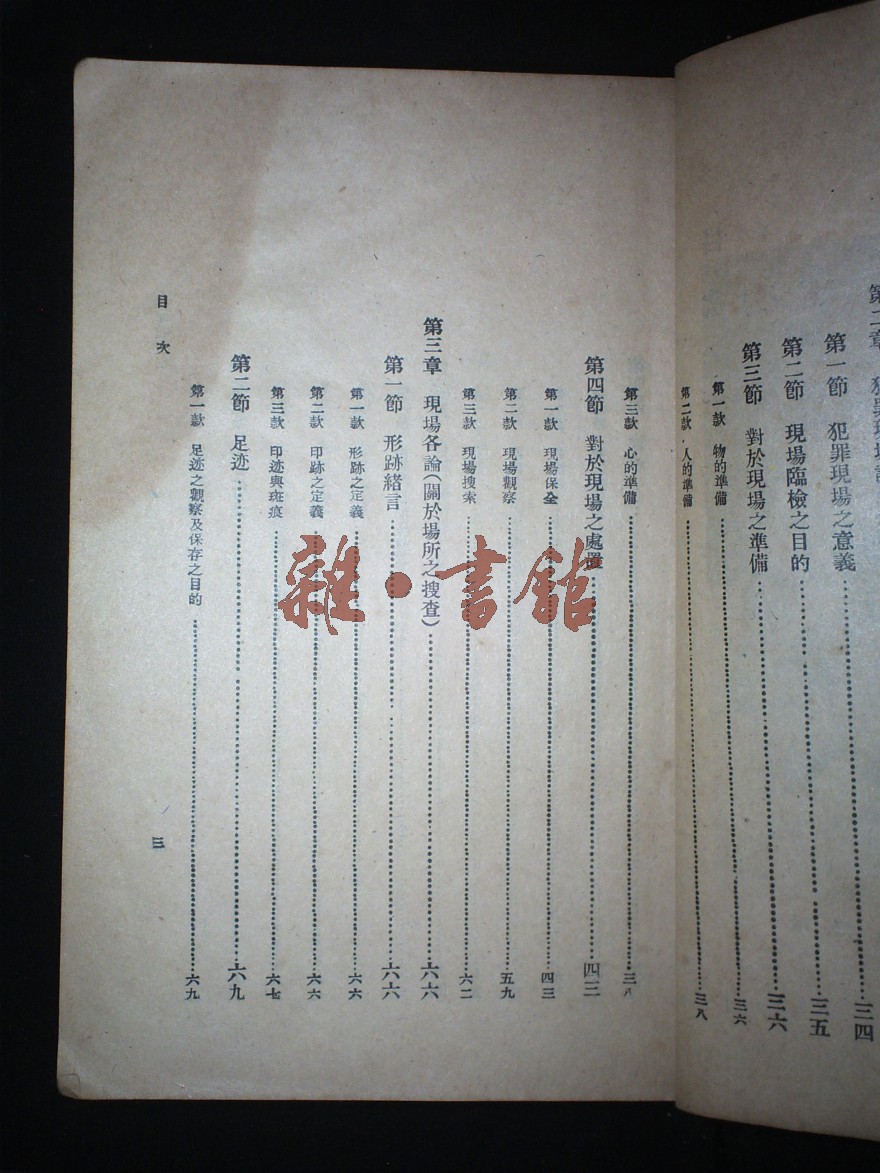 第二章 犯罪現場
三四
第一節 犯罪現場之意義
三五
第二節 現場臨檢之目的
三六
第三節 對於現場之準備
第一款 物的準備
三六
第二款 人的準備
三八
第三款 心的準備
三八
第四節 對於現場之處置
四三
第一款 現場保全
四三
第二款 現場觀察
五九
第三款 現場搜索
六二
第三章 現場各論(關於場所之搜查)
六六
第一節 形跡緒言
六六
第一款 形跡之定義
六六
第二款 印跡之定義
六六
第三款 印迹與斑痕
六七
第二節 足迹
六九
第一款 足迹之觀察及保存之目的
六九
目次
三
雜·書館